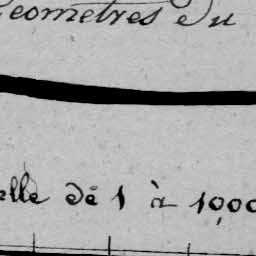 eometres du
elle de 1 à 1000